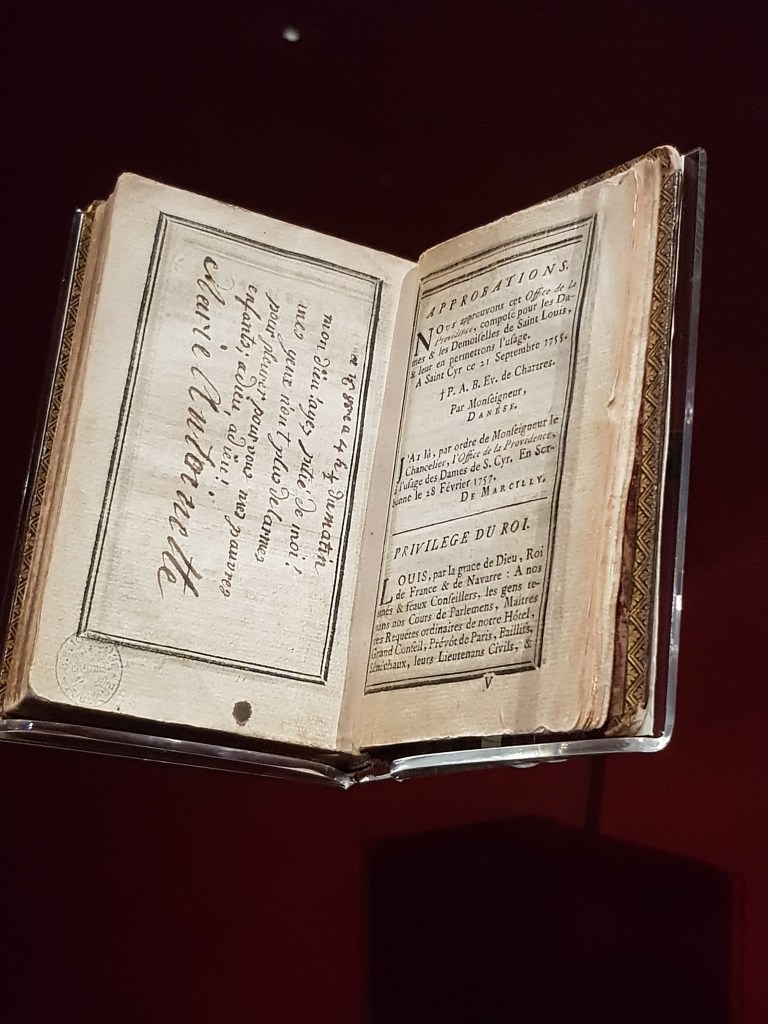 ce 16 8bre a 4 h ½ du matin
mon dieu ! ayez pitié de moi !
mes yeux n'ont plus de larmes
pour pleurer pour vous mes pauvres
enfants; adieu adieu !
Marie Antoinette
APPROBATIONS.
NOus approuvons cet Office de la
Providence, composé pour les Da-
mes & les Demoiselles de Saint Louis,
& leur en permettons l'usage.
A Saint Cyr ce 21 Septembre 1755.
† P. A. B. Ev. de Chartres.
Par Monseigneur,
DANÉSE.
J'AI lû, par ordre de Monseigneur le
Chancelier, l'Office de la Providence,
à l'usage des Dames de S. Cyr. En Sor-
bonne le 28 Février 1757.
DE MARCILLY.
PRIVILEGE DU ROI.
LOUIS, par la grace de Dieu, Roi
de France & de Navarre : A nos
amés & feaux Conseillers, les gens te-
nans nos Cours de Parlemens, Maîtres
des Requêtes ordinaires de notre Hôtel,
Grand Conseil, Prévôt de Paris, Baillifs,
Sénéchaux, leurs Lieutenans Civils, &
V